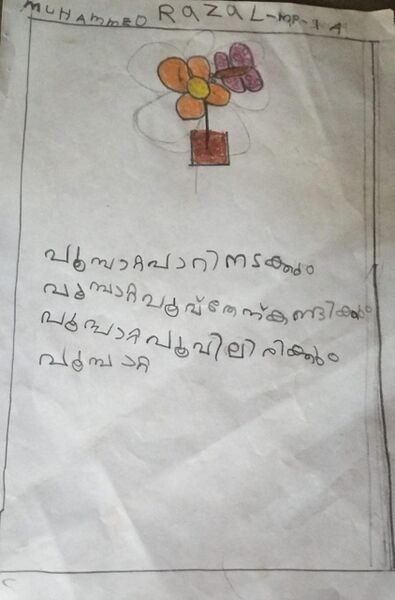 MUHAMMED RAZAL-MP-1 A
പൂമ്പാറ്റ പാറി നടക്കും
പൂമ്പാറ്റ പൂവ് തേന്കുണ്ടിക്കും
പൂമ്പാറ്റ പൂവിലിരിക്കും
പൂമ്പാറ്റ